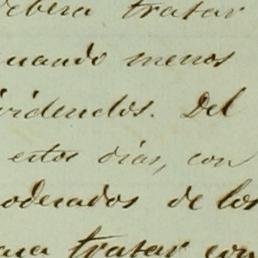 debera tratar
cuando menos
dividendos. Del
estos dias, con
apoderados de los
para tratar con